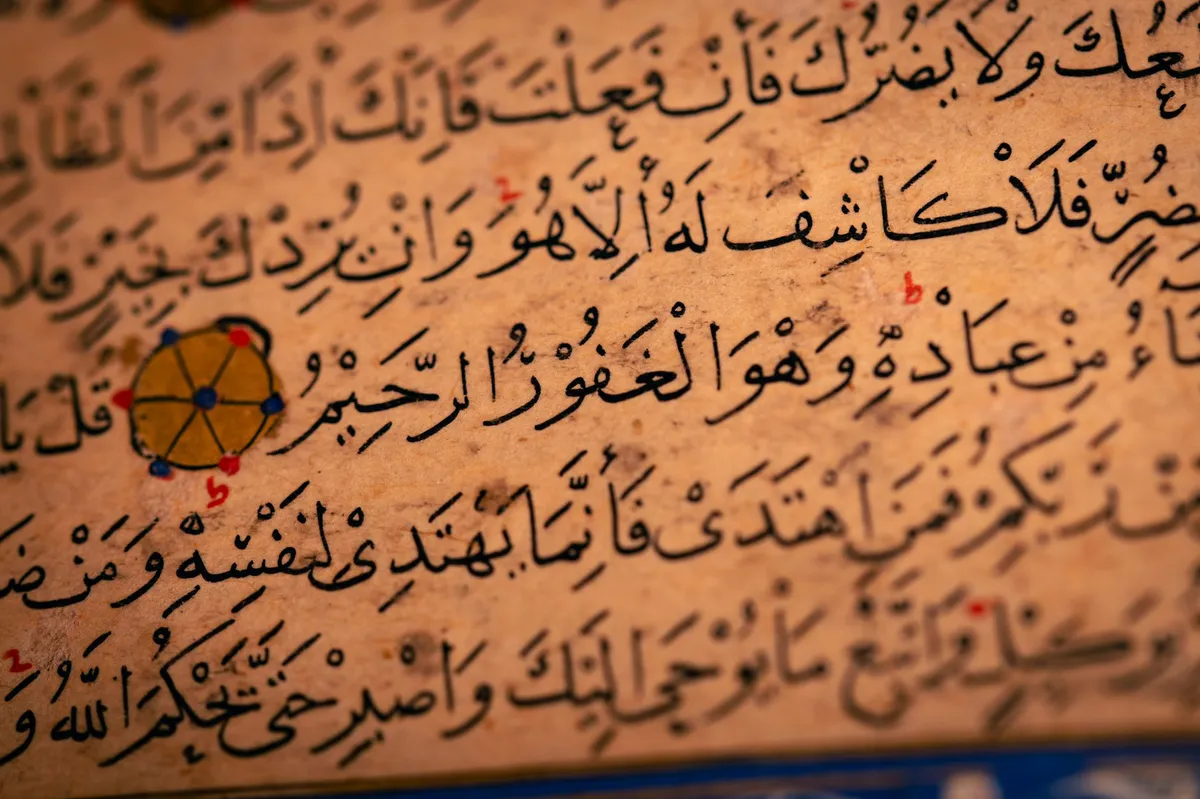 ـعُكَ وَلَا يَضُرُّكَ فَاِنْ فَعَلْتَ فَاِنَّكَ اِذًا مِّنَ الظَّالِمِـ
ـضُرٍّ فَلَا كَاشِفَ لَهُ اِلَّا هُوَ ۚ وَاِنْ يُرِدْكَ بِخَيْرٍ فَلَا
ـاءُ مِنْ عِبَادِهٖ ط وَهُوَ الْغَفُوْرُ الرَّحِيْمُ قُلْ يَا
مِنْ رَبِّكُمْ فَمَنِ اهْتَدٰىْ فَاِنَّمَا يَهْتَدِىْ لِنَفْسِهٖ ط وَمَنْ ضَـ
بِوَكِيْلٍ وَاتَّبِعْ مَا يُوْحٰى اِلَيْكَ وَاصْبِرْ حَتّٰى يَحْكُمَ اللّٰهُ ۚ وَ